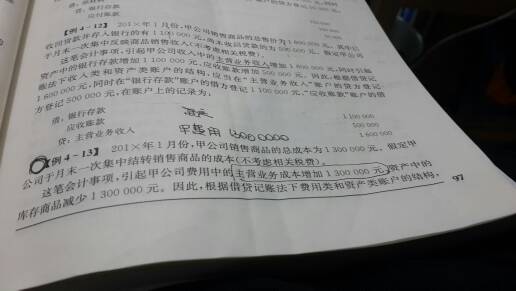 贷：银行存款
应付账款
【例 4-12】 201×年1月份，甲公司销售商品的总售价为1 600 000元，其中公司
收回货款存入银行的有1 100 000元，尚未收回货款的为500 000元。假定甲公司
于月末一次集中反映商品销售收入(不考虑相关税费)。
这笔会计事项，引起甲公司收入中的主营业务收入增加1 600 000元，同时引起
资产中的银行存款增加1 100 000元，应收账款增加500 000元。因此，根据借贷记
账法下收入类和资产类账户的结构，应当在“主营业务收入”账户的贷方登记
1 600 000元，同时在“银行存款”账户的借方登记1 100 000元，“应收账款”账户的借
方登记500 000元，在账户上的记录为：
借：银行存款 1 100 000
应收账款 500 000
贷：主营业务收入 1 600 000
费用 1300000
【例 4-13】 201×年1月份，甲公司销售商品的总成本为1 300 000元，假定甲
公司于月末一次集中结转销售商品的成本(不考虑相关税费)。
这笔会计事项，引起甲公司费用中的主营业务成本增加1 300 000元，资产中的
库存商品减少1 300 000元。因此，根据借贷记账法下费用类和资产类账户的结构，
97